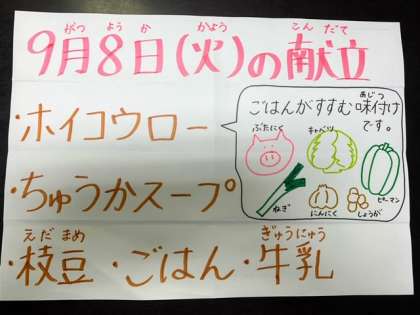 がつ ようか かよう こんだて
9月8日(火)の献立
・ホイコウロー
・ちゅうかスープ
えだまめ ぎゅうにゅう
・枝豆・ごはん・牛乳
あじつ
ごはんがすすむ味付け
です。
ぶたにく キャベツ
ねぎ にんにく しょうが ピーマン